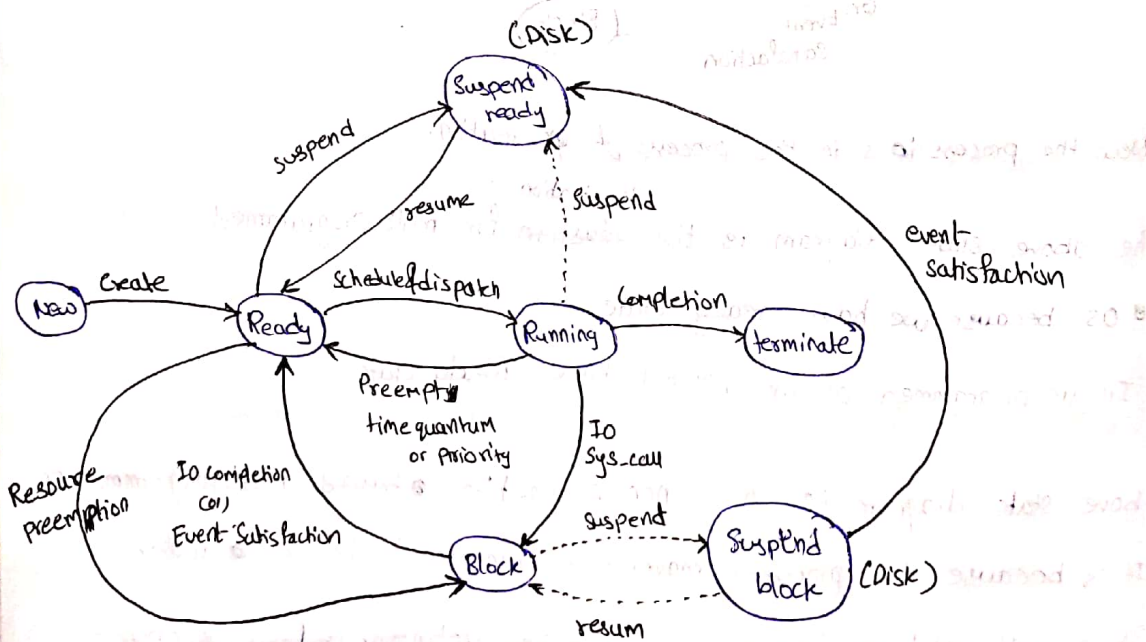 (Disk)
Suspend
ready
suspend
resume
suspend
event
satisfaction
New
Create
Ready
Schedule & dispatch
Running
Completion
terminate
Preempt
time quantum
or Priority
IO
Sys_call
Resource
preemption
IO Completion
(or)
Event Satisfaction
Block
suspend
resum
Suspend
block
(Disk)